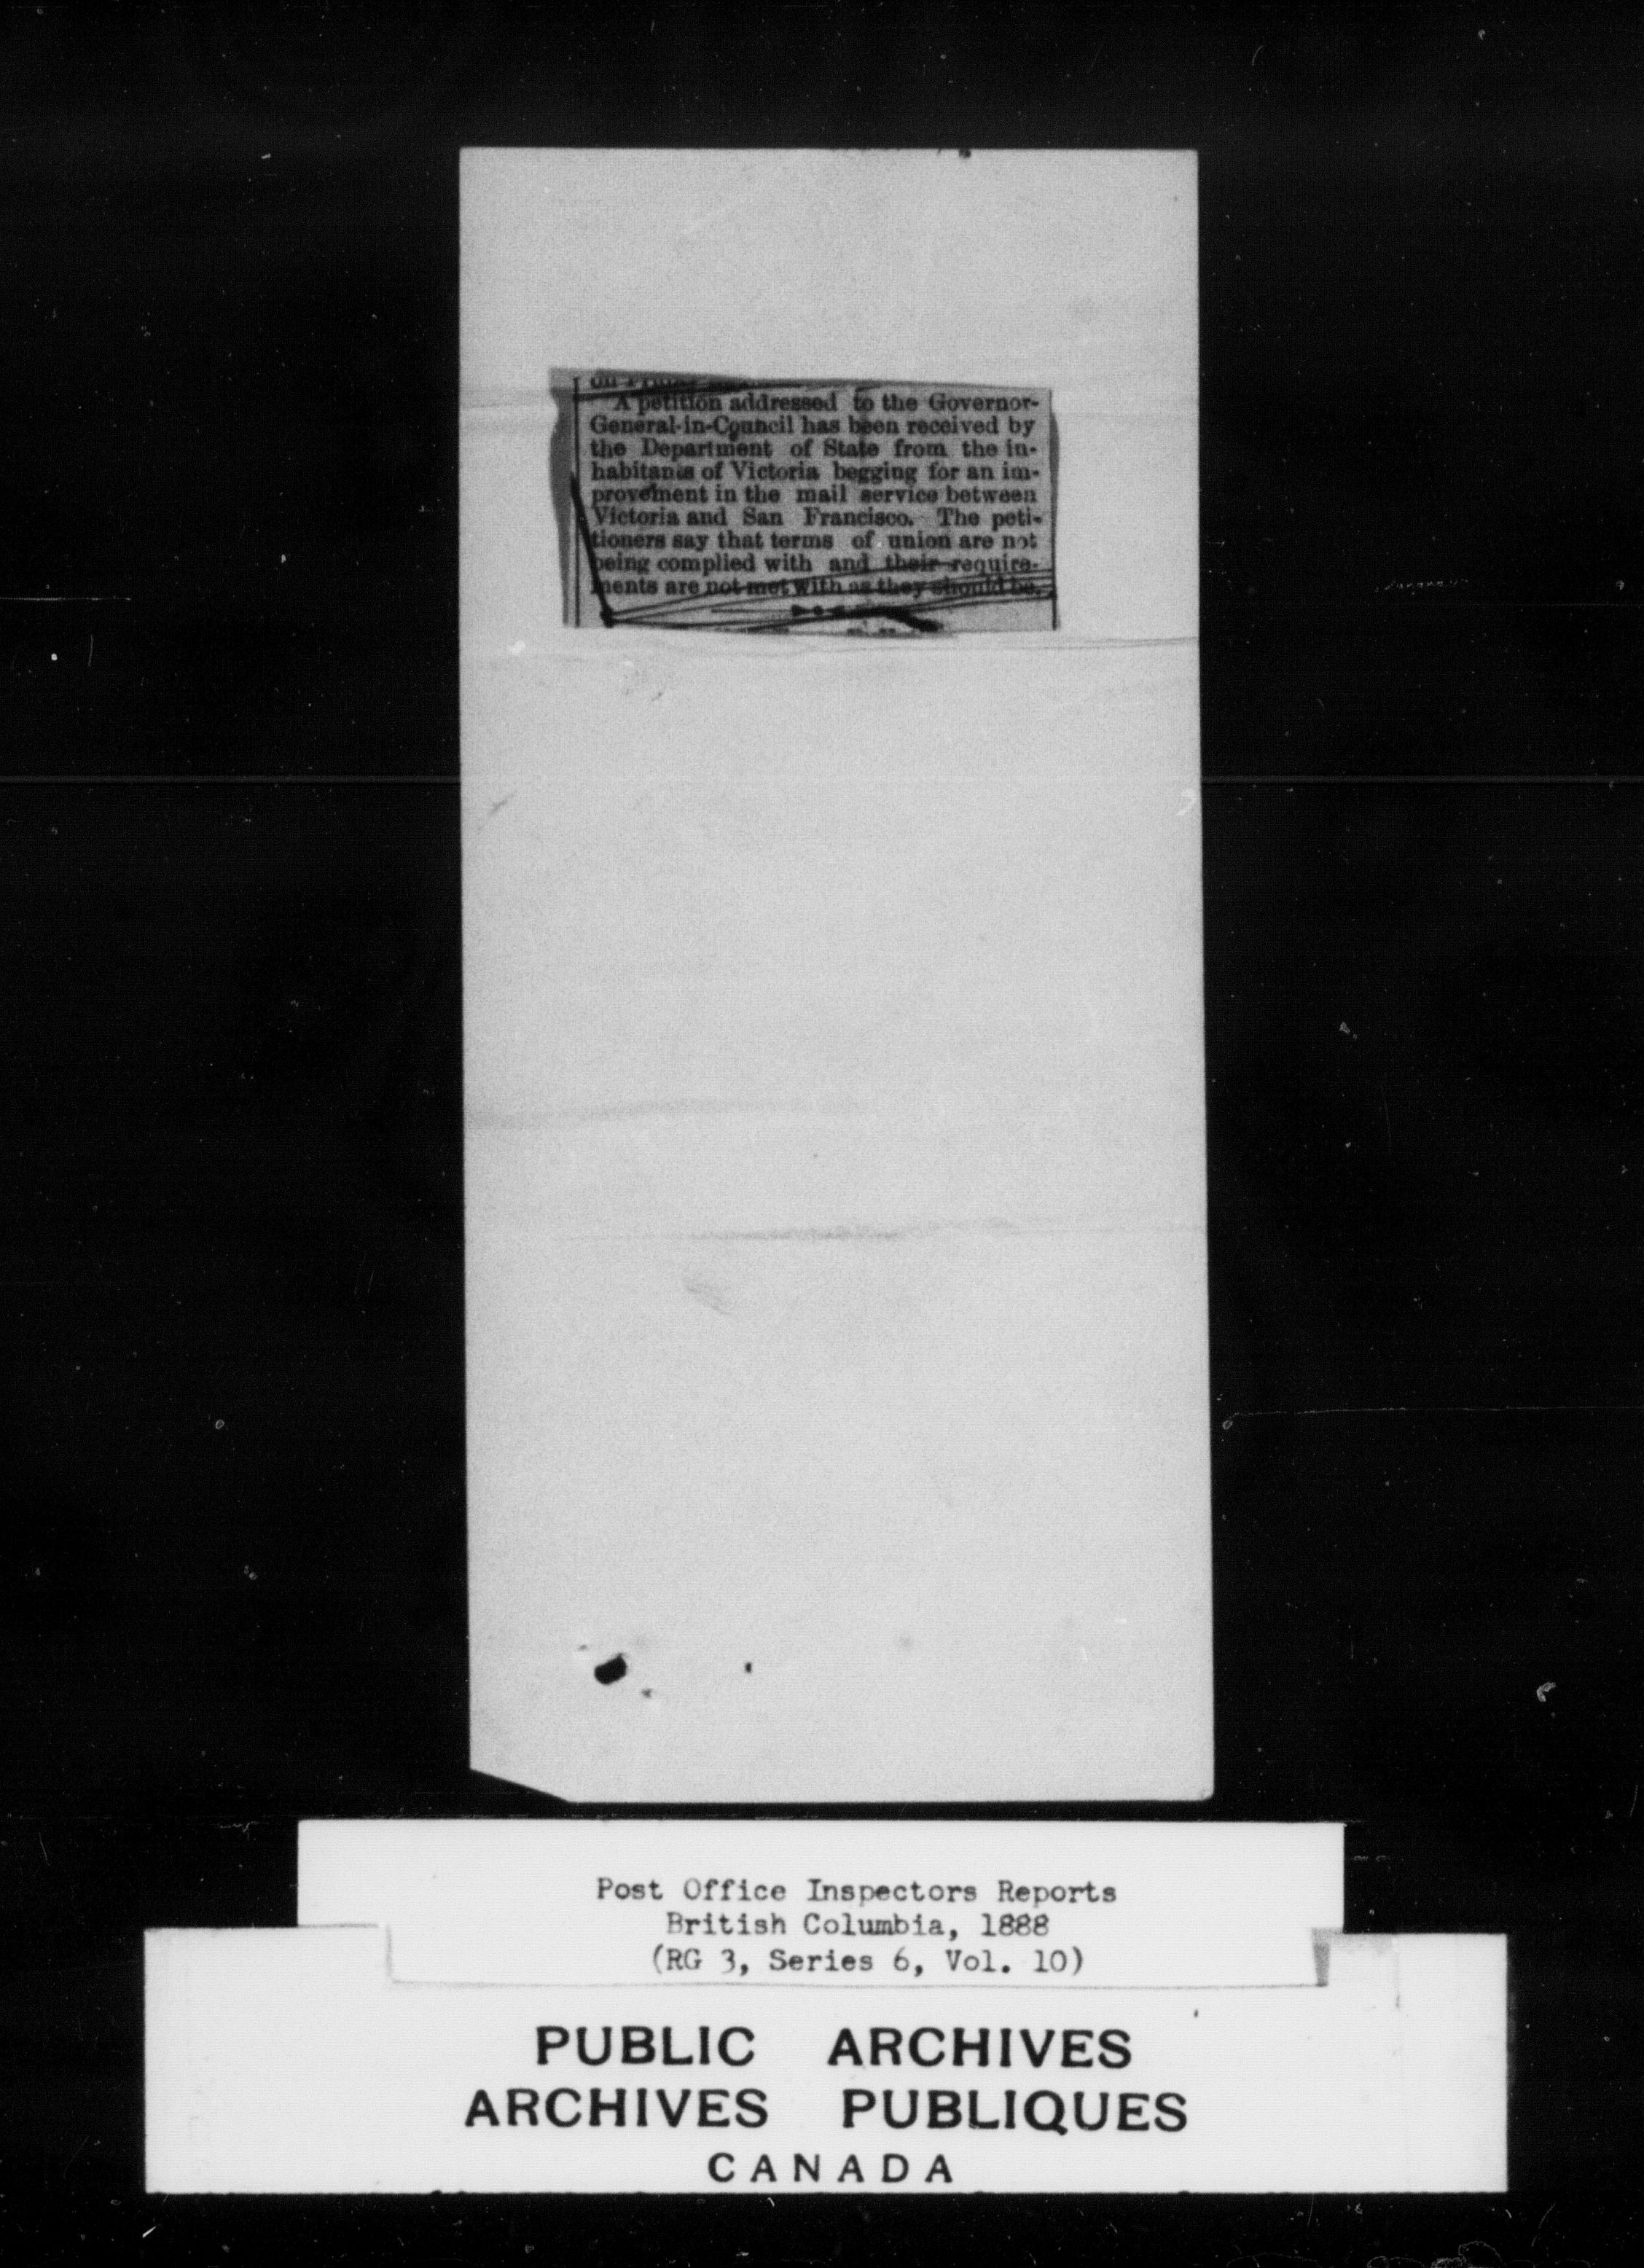 A petition addressed to the Governor-
General-in-Council has been received by
the Department of State from the in-
habitants of Victoria begging for an im-
provement in the mail service between
Victoria and San Francisco. The peti-
tioners say that terms of union are not
being complied with and their require-
ments are not met with as they should be.
Post Office Inspectors Reports
British Columbia, 1888
(RG 3, Series 6, Vol. 10)
PUBLIC ARCHIVES
ARCHIVES PUBLIQUES
CANADA